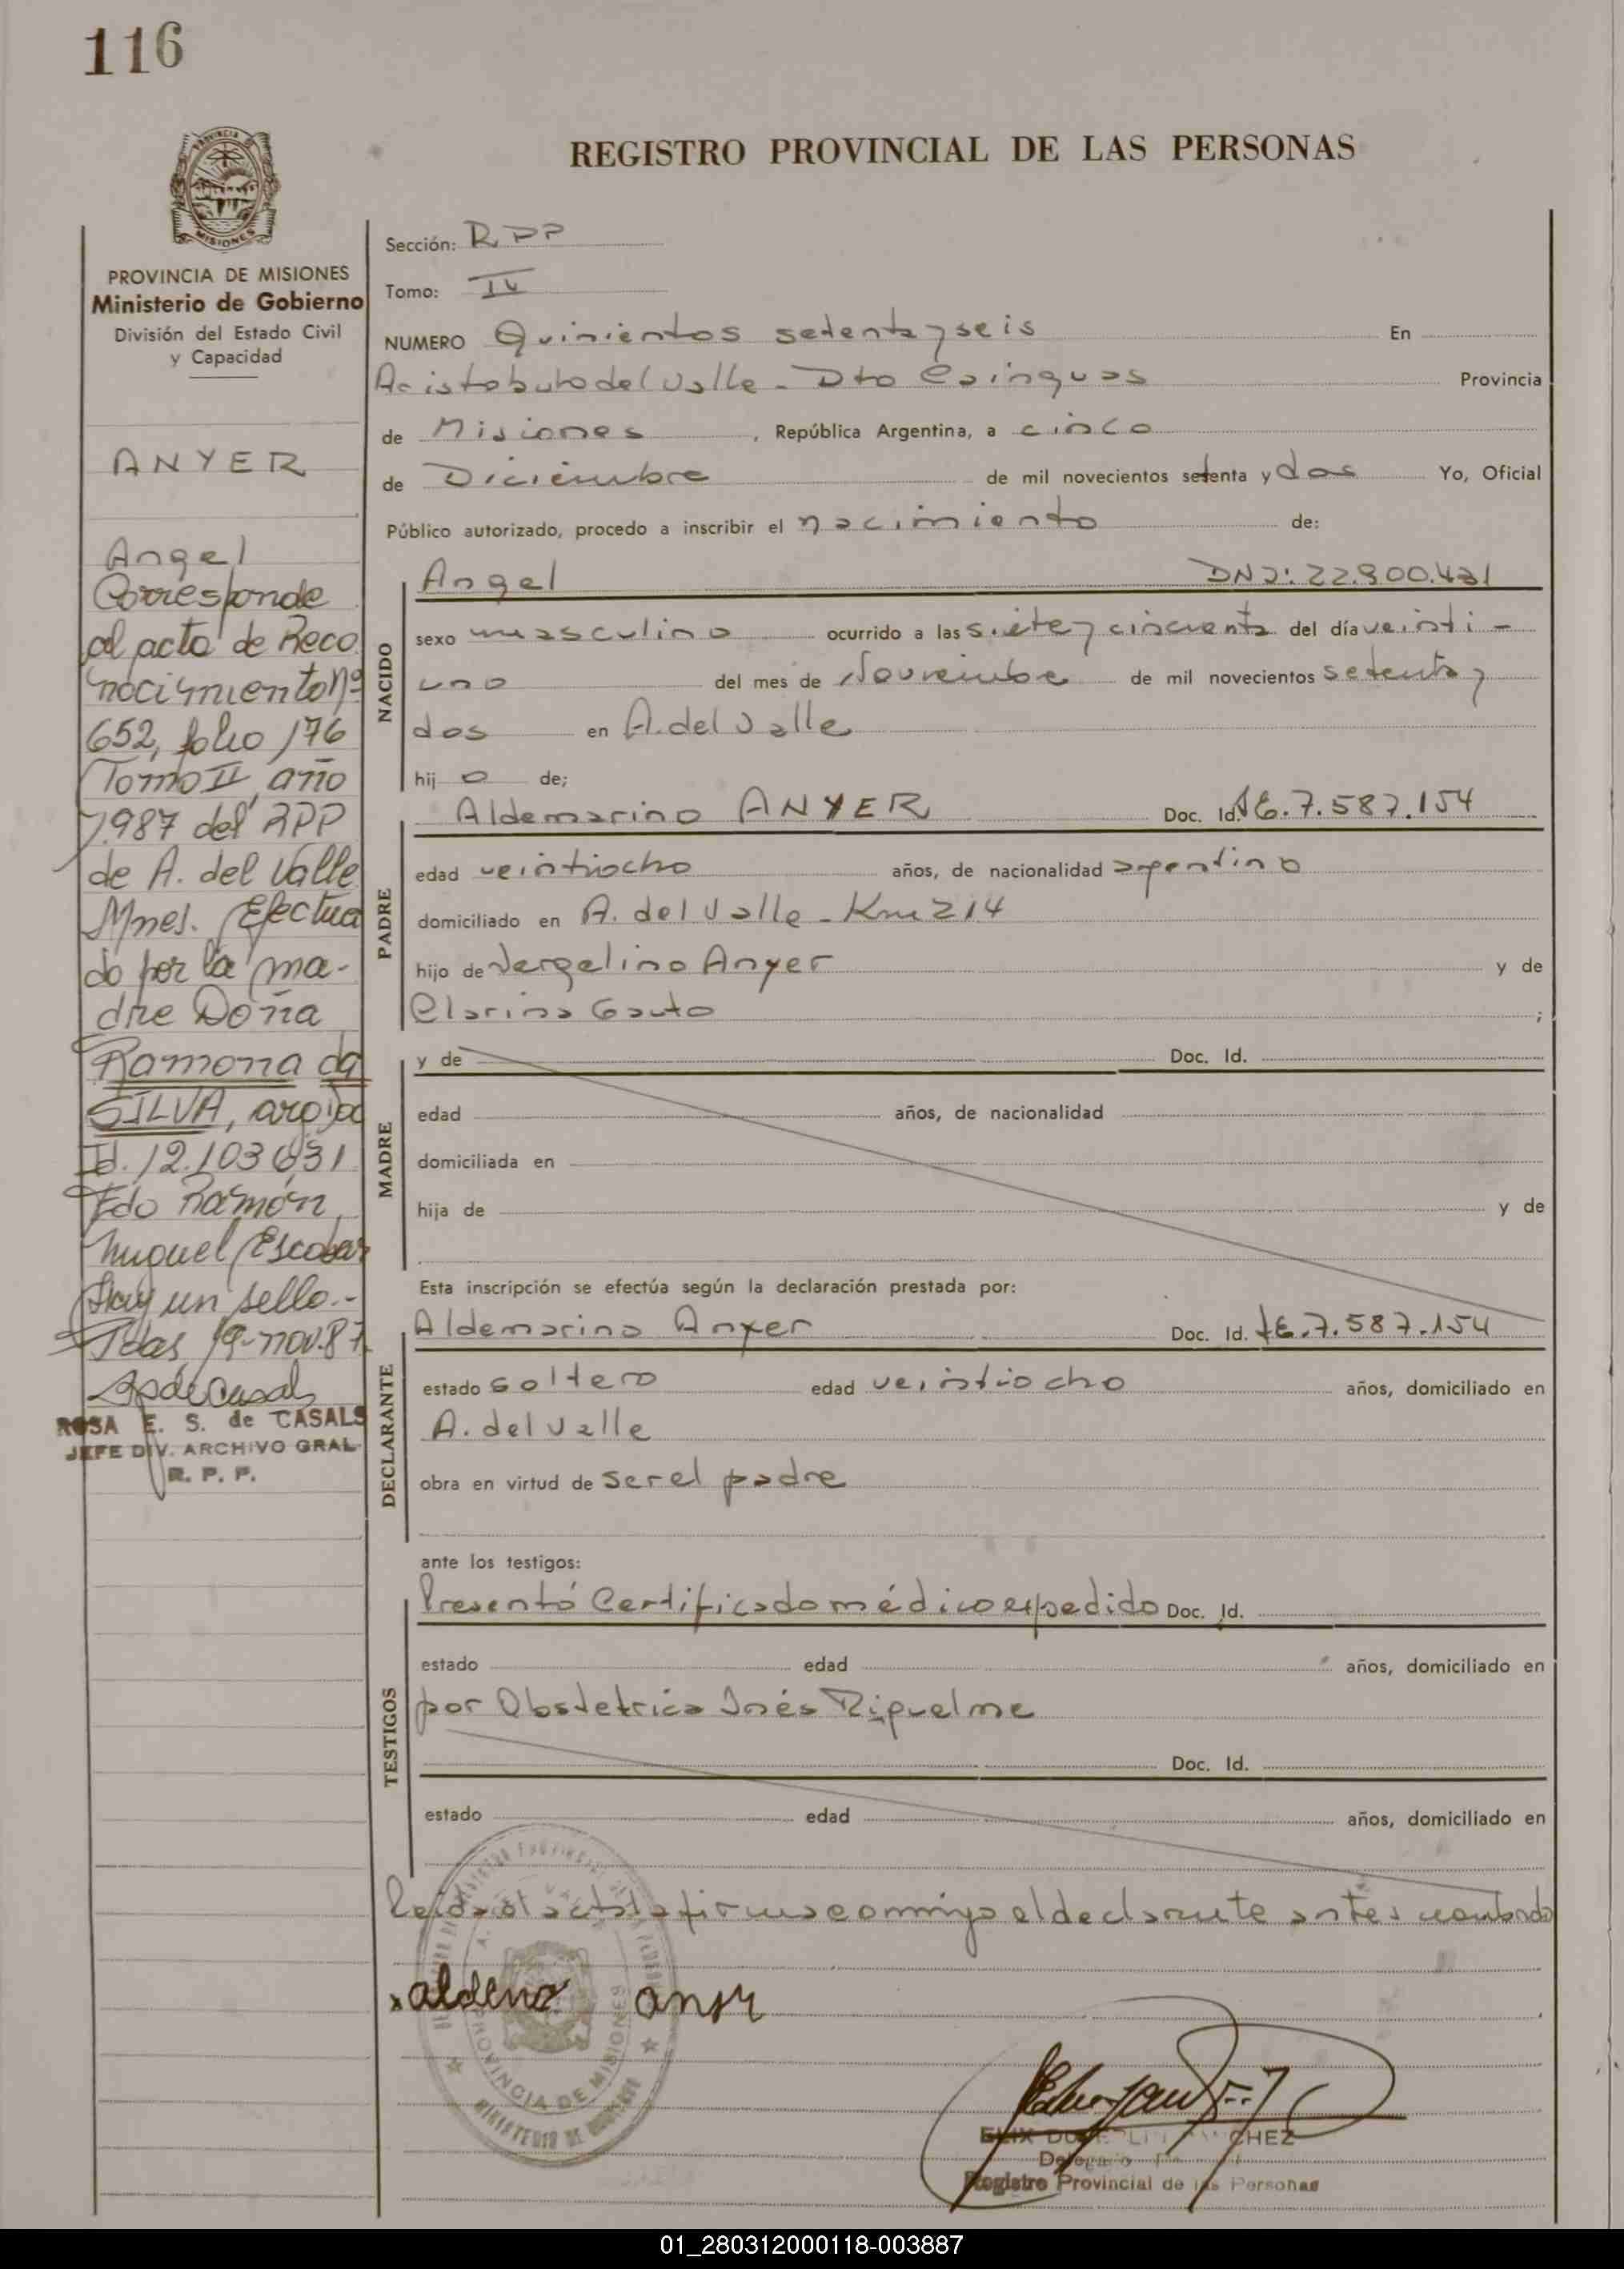 116
REGISTRO PROVINCIAL DE LAS PERSONAS
PROVINCIA
MISIONES
PROVINCIA DE MISIONES
Ministerio de Gobierno
División del Estado Civil
y Capacidad
ANYER
Angel
Corresponde
al acta de Reco
nocimiento Nº
652, folio 176
Tomo II, año
1.987 del RPP
de A. del Valle
Mnes. Efectua
do por la ma-
dre Doña
Ramona da
SILVA,
Id. 12.103.631
Fdo Ramón
Miguel Escobar
Hay un sello.-
Pdas, 19-nov.87
ROSA E. S. de CASALS
JEFE DIV. ARCHIVO GRAL.
R. P. P.
Sección: RPP
Tomo: IV
NUMERO Quinientos setenta y seis En
Aristobulo del Valle - Dto Cainguas Provincia
de Misiones, República Argentina, a cinco
de Diciembre de mil novecientos setenta y dos Yo, Oficial
Público autorizado, procedo a inscribir el nacimiento de:
NACIDO
Angel DNI: 22.900.431
sexo masculino ocurrido a las siete y cincuenta del día veinti-
uno del mes de Noviembre de mil novecientos setenta y
dos en A. del Valle
hijo de;
PADRE
Aldemarino ANYER Doc. Id. 7.587.154
edad veintiocho años, de nacionalidad argentino
domiciliado en A. del Valle - Km 214
hijo de Vergelino Anyer y de
Clarina Gauto ;
MADRE
y de Doc. Id.
edad años, de nacionalidad
domiciliada en
hija de y de
Esta inscripción se efectúa según la declaración prestada por:
DECLARANTE
Aldemarino Anyer Doc. Id. 7.587.154
estado soltero edad veintiocho años, domiciliado en
A. del Valle
obra en virtud de ser el padre
ante los testigos:
TESTIGOS
Presentó Certificado médico expedido Doc. Id.
estado edad años, domiciliado en
por Obstetrica Inés Riquelme
Doc. Id.
estado edad años, domiciliado en
Leida el acta la firma conmigo el declarante antes nombrado
PROVINCIA DE MISIONES
Registro Provincial de las Personas
01_280312000118-003887